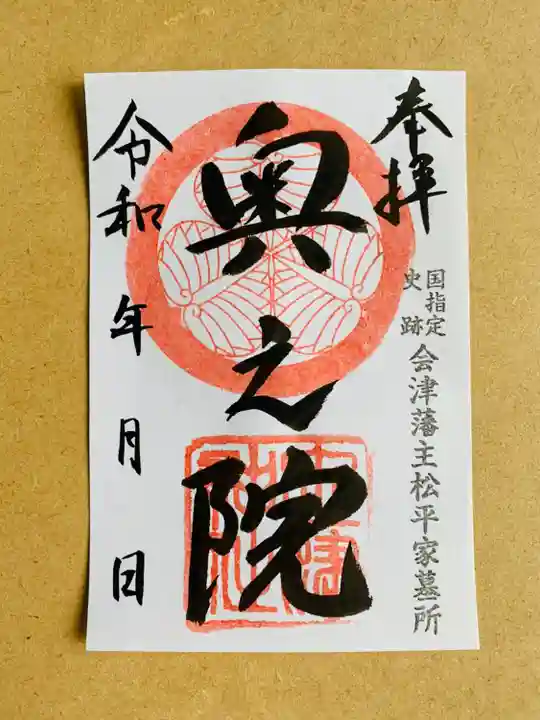 奉拝
国指定
史跡
会津藩主松平家墓所
奥之院
令和 年 月 日